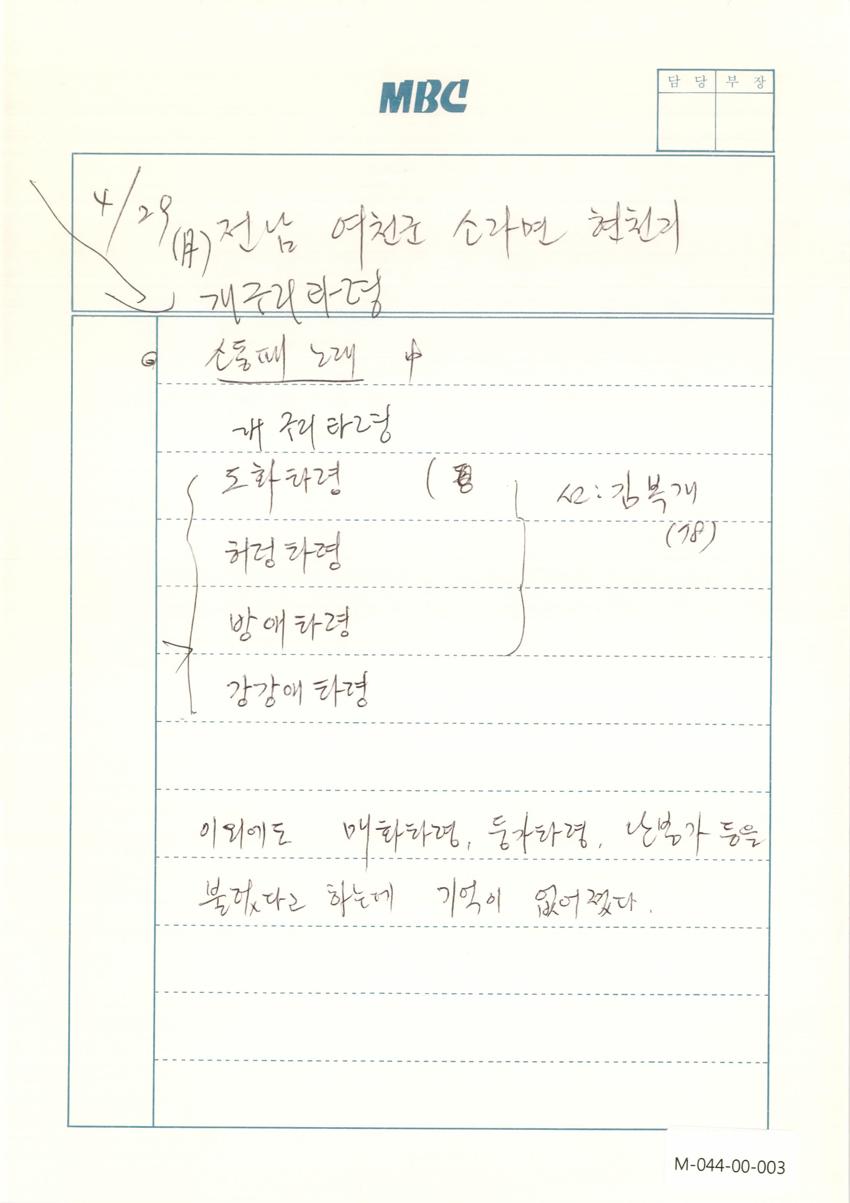 MBC
담 당 부 장
4/29(月) 전남 여천군 소라면 현천리
개구리타령
소동패 노래 中
개구리타령
도화타령 (
선: 김복개
(78)
허령타령
방애타령
강강애타령
이외에도 매화타령, 둥가타령, 난봉가 등을
불렀다고 하는데 기억이 없어졌다.
M-044-00-003